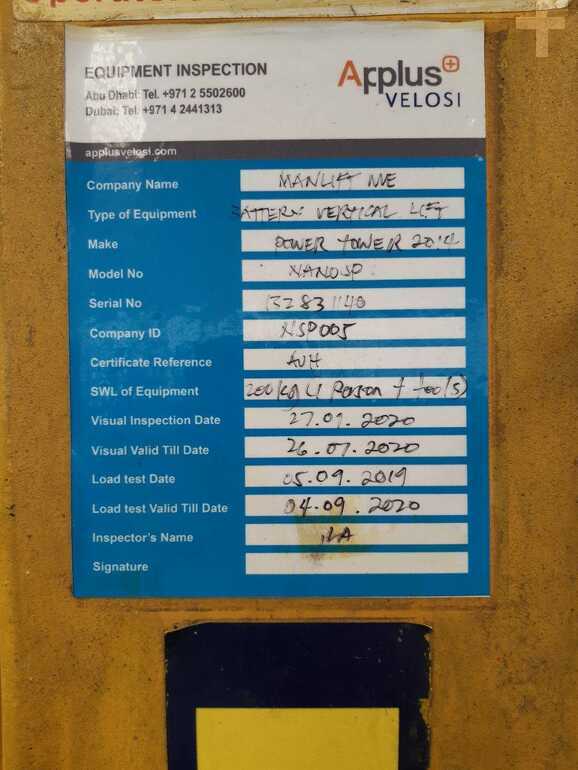 EQUIPMENT INSPECTION
Abu Dhabi: Tel. +971 2 5502600
Dubai: Tel. +971 4 2441313
Applus+
VELOSI
applusvelosi.com
Company Name MANLIFT ME
Type of Equipment BATTERY VERTICAL LIFT
Make POWER TOWER 2014
Model No NANOSP
Serial No 13283114B
Company ID NSP005
Certificate Reference AUH
SWL of Equipment 200kg (1 Person + tool(s)
Visual Inspection Date 27.01.2020
Visual Valid Till Date 26.07.2020
Load test Date 05.09.2019
Load test Valid Till Date 04.09.2020
Inspector's Name
Signature